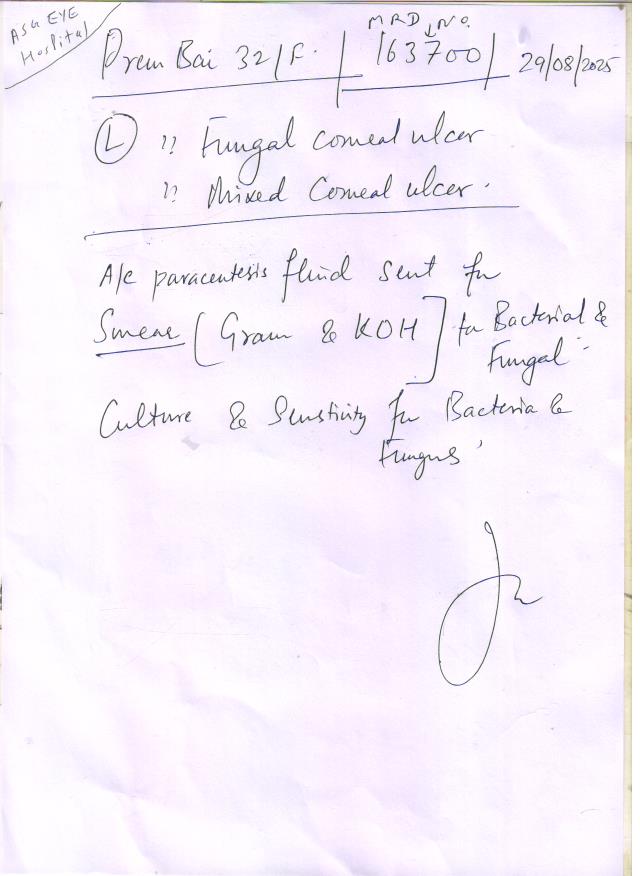 ASG EYE
Hospital
MRD No.
Prem Bai 32/F. 163700 29/08/2025
(L) ?? Fungal corneal ulcer
?? Mixed Corneal ulcer.
A/c paracentesis fluid sent for
Smear [Gram & KOH] for Bacterial &
Fungal
Culture & Senstivity for Bacteria &
Fungus